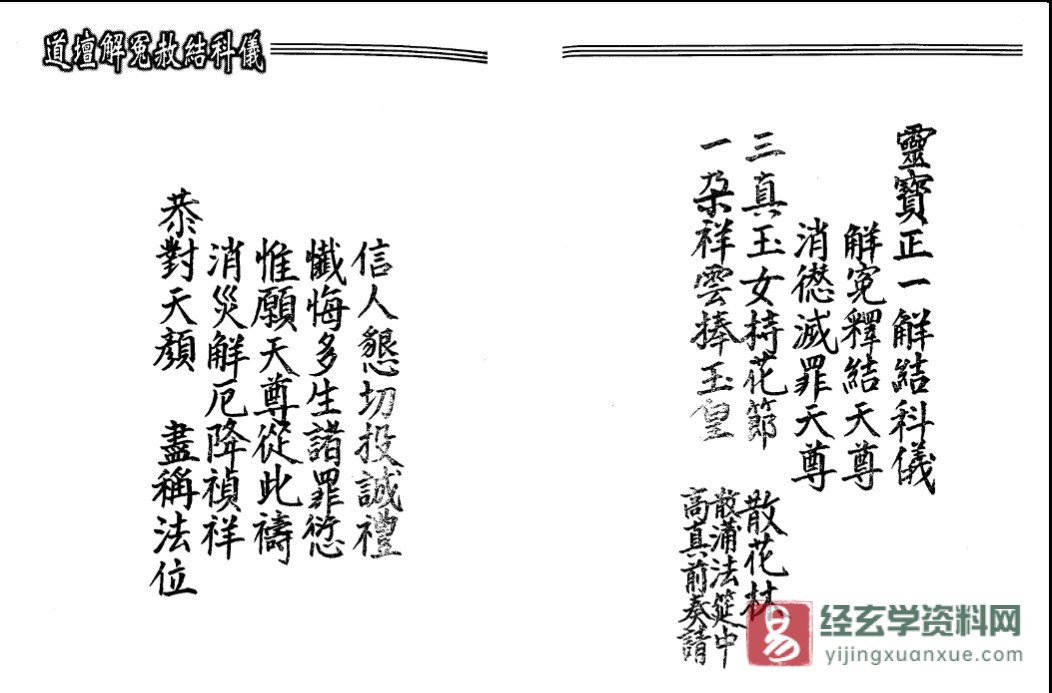 道壇解冤赦結科儀
靈寶正一解結科儀
解冤釋結天尊
消愆滅罪天尊
三真玉女持花節 散花林
一朶祥雲捧玉皇 散滿法筵中
高真前奏請
信人懇切投誠禮
懺悔多生諸罪愆
惟願天尊從此禱
消災解厄降禎祥
恭對天顏 盡稱法位
易
经玄学资料网
yijingxuanxue.com